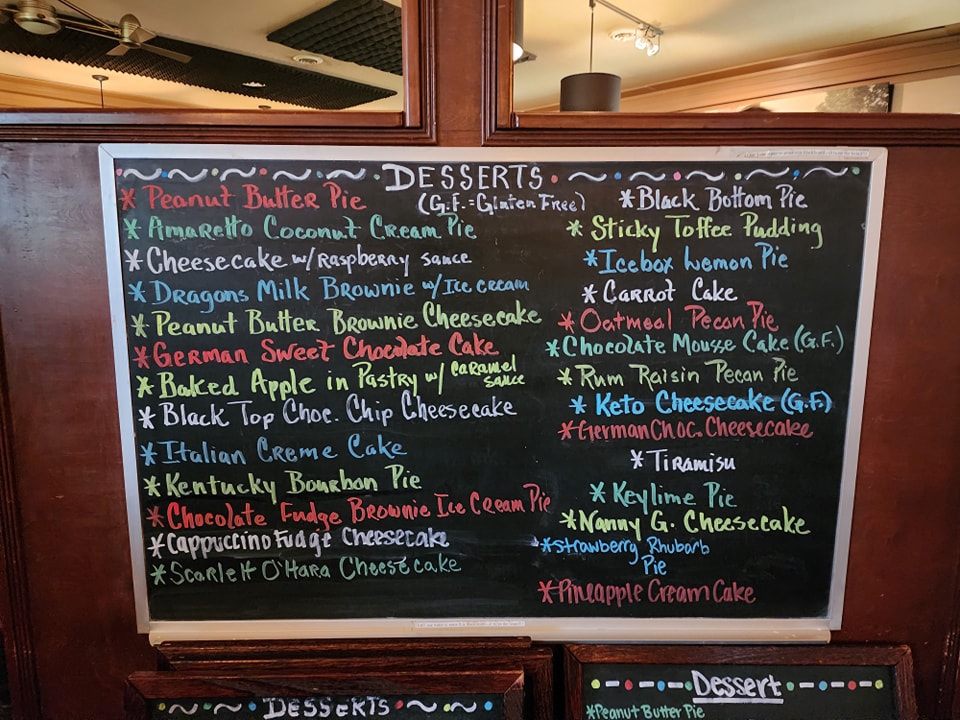 DESSERTS
(G.F.=Gluten Free)
*Peanut Butter Pie
*Amaretto Coconut Cream Pie
*Cheesecake w/Raspberry sauce
*Dragons Milk Brownie w/Ice cream
*Peanut Butter Brownie Cheesecake
*German Sweet Chocolate Cake
*Baked Apple in Pastry w/ caramel
sauce
*Black Top Choc. Chip Cheesecake
*Italian Creme Cake
*Kentucky Bourbon Pie
*Chocolate Fudge Brownie Ice Cream Pie
*Cappuccino Fudge Cheesecake
*Scarlett O'Hara Cheesecake
*Black Bottom Pie
*Sticky Toffee Pudding
*Icebox Lemon Pie
*Carrot Cake
*Oatmeal Pecan Pie
*Chocolate Mousse Cake (G.F.)
*Rum Raisin Pecan Pie
*Keto Cheesecake (G.F.)
*German Choc. Cheesecake
*Tiramisu
*Keylime Pie
*Nanny G. Cheesecake
*Strawberry Rhubarb
Pie
*Pineapple Cream Cake
DESSERTS
Dessert
*Peanut Butter Pie